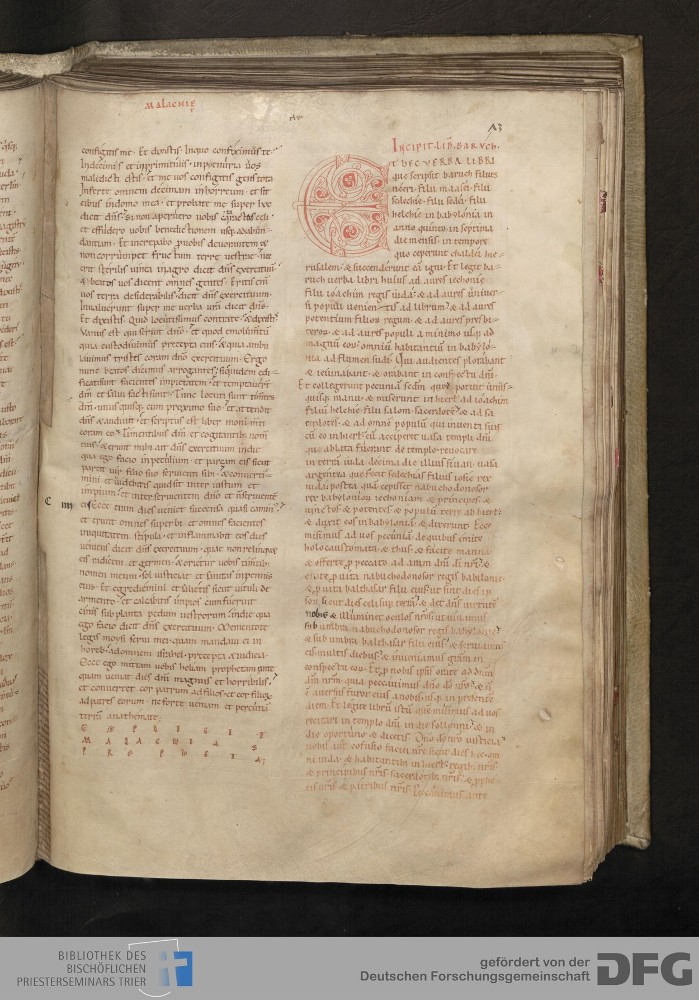 MALACHIĘ
configitis me. Et dixistis. Inquo configimus te.
Indecimis et inprimitiuis. Inpenuria uos
maledicti estis. et me uos configitis gens tota
Inferte omnem decimam inhorreum. et sit
cibus indomo mea. et probate me super hoc
dicit dn̄s. Si non aperuero uobis
et effudero uobis benedictionem usq; adabun-
dantiam. Et increpabo p uobis deuorantem et
non corrumpet fructum terre uestre. nec
erit sterilis uinea inagro dicit dn̄s exercituum
& beatos uos dicent omnes gentes. Eritis enī
uos terra desiderabilis. dicit dn̄s exercituum.
Inualuerunt super me uerba urā dicit dn̄s.
Et dixistis. Quid locuti sumus contra te. & dixistis
Vanus est qui seruit dnō. et quod emolumtū
quia custodiuimus precepta eius. & quia ambu
lauimus tristes coram dnō exercituum. Ergo
nunc beatos dicimus arrogantes. siquidem edi-
ficati sunt facientes impietatem. et temptauerͭ
dm̄ et salui facti sunt. Tunc locuti sunt timentes
dm̄. unus quisq; cum proximo suo. et attendit
dn̄s & audiuit. et scriptus est liber
coram eo. Timentibus dm̄ et cogitantib; nomē
eius. & erunt mihi ait dn̄s exercituum indie
qua ego facio inpeculium. et parcam eis sicut
parcit uir filio suo seruienti sibi. & conuerti-
mini et uidebitis quid sit inter iustum et
impium. et inter seruientem dnō et n̄ seruientē
C IIII ei. Ecce enim dies ueniet succensa quasi camin'
et erunt omnes superbi et omnes facientes
iniquitatem stipula. et inflammabit eos dies
ueniens dicit dn̄s exercituum. quae non relinquet
eis radicem et germen. & orietur uobis timentib;
nomen meum sol iusticiae et sanitas inpennis
eius. Et egrediemini et salietis sicut uituli de
armento. et calcabitis impios cum fuerint
cinis sub planta pedum uestrorum indie qua
ego facio dicit dn̄s exercituum. Mementote
legis moysi serui mei. quam mandaui ei in
horeb. ad omnem israhel. precepta & iudicia.
Ecce ego mittam uobis heliam prophetam ante
quam ueniat dies dn̄i magnus et horribilis.
et conuertet cor patrum ad filios. et cor filioꝝ
ad patres eorum. ne forte ueniam et percutiā
terrā anathemate.
EXPLICIT
MALACHIAS
PROPHETA;
INCIPIT LIB̄ BARVCH.
ET HEC VERBA LIBRI
que scripsit baruch filius
neeri. filii maasei. filii
sedechie. filii sedei. filii
helchie in babylonia in
anno quinto. in septima
die mensis. in tempore
quo ceperunt chaldei hie-
rusalem. & succenderunt eā igni. Et legit ba-
ruch uerba libri huius ad aures iechonie
filii ioachim regis iuda. & ad aures uniuer-
si populi uenientis ad librum. & ad aures
potentium filiorū regum. & ad aures presbi-
teroꝝ. & ad aures populi a minimo usq; ad
magnū eoꝝ. omniū habitantiū in babylo-
nia ad flumen sudi. Qui audientes plorabant
& ieiunabant. & orabant in conspectu dn̄i.
Et collegerunt pecuniā secdm̄ quod potuit unius-
cuiusq; manus. & miserunt in hierłm ad ioachim
filiū helchie. filii salom. sacerdotē. & ad sa
cerdotes. & ad omnē populū qui inuenti sunt
cū eo in hierłm. cū acciperet uasa templi dn̄i
que ablata fuerant de templo. reuocare
in terrā iuda. decima die mensis siuan. uasa
argentea que fecit sedechias filius iosie rex
iuda. postea quā cepisset nabuchodonosor
rex babylonioꝝ iechoniam & principes. &
uinctos & potentes & populū terre ab hierłm
& duxit eos in babyloniā. & dixerunt. Ecce
misimus ad uos pecuniā. de quibus emite
holocaustomata. & thus. & facite manna.
& offerte p peccato ad aram dn̄i dī nrī. &
orate p uita nabuchodonosor regis babylonie.
& p uita balthasar filii eius. ut sint dies ipsoꝝ
sicut dies celi sup terrā. & det dn̄s uirtutē
nobis. & illuminet oculos nrōs ut uiuamus
sub umbra nabuchodonosor regis babylonie
& sub umbra balthasar filii eius. & seruiamus
eis multis diebus. & inueniamus gratiam in
conspectu eoꝝ. Et p nobis ipsis orate ad dnm̄
dm̄ nrm̄. quia peccauimus dnō dō nrō. & n̄
ē auersus furor eius a nobis usq; in presentē
diem. Et legite librū istū quē misimus ad uos
recitari in templo dn̄i in die sollenni. & in
die oportuno. & dicetis. Dnō dō nrō iusticia
nobis aūt confusio faciei nrē. sicut dies hec. om
ni iuda. & habitantibus in hierłm. regib; nrīs.
& principibus nrīs. sacerdotib; nrīs. & pphe-
tis nrīs. & patribus nrīs. Peccauimus ante
BIBLIOTHEK DES
BISCHÖFLICHEN
PRIESTERSEMINARS TRIER
gefördert von der
Deutschen Forschungsgemeinschaft
DFG